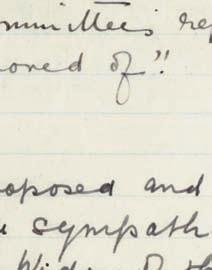 mmittee's rep
oved of"
oposed and
sympath